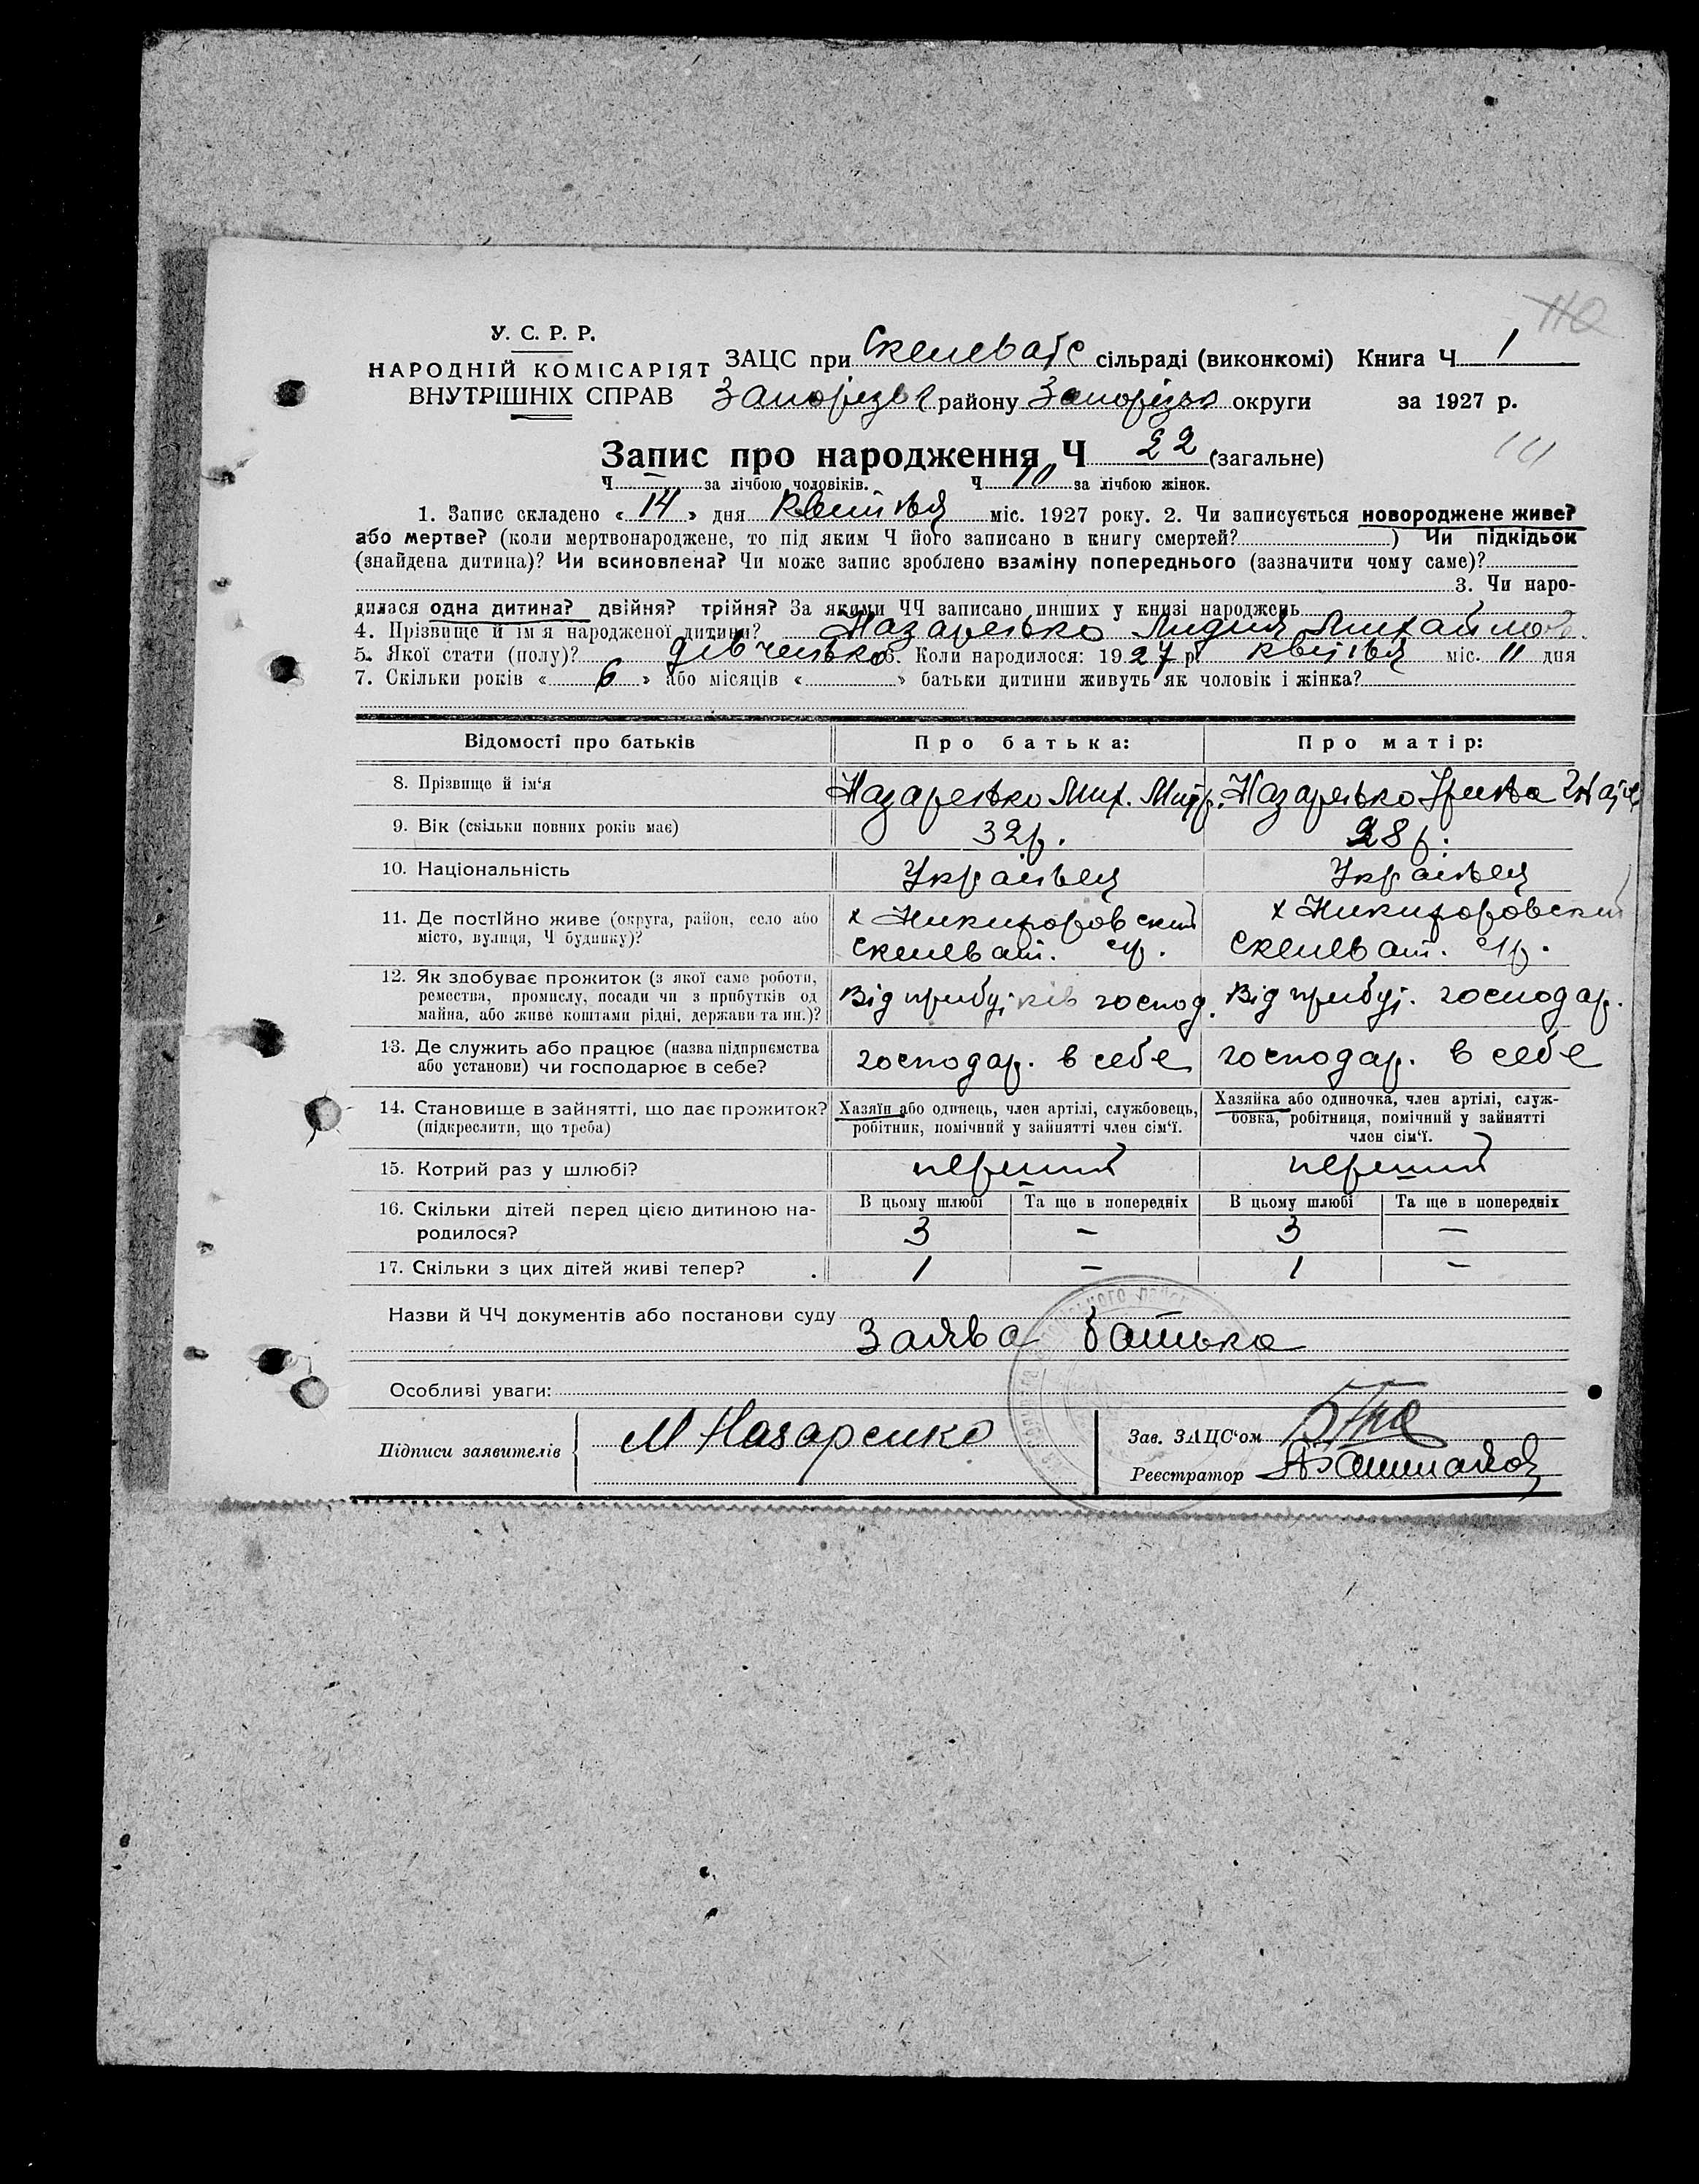 110
У. С. Р. Р.
НАРОДНІЙ КОМІСАРІЯТ
ВНУТРІШНІХ СПРАВ
ЗАЦС при Скелеватс сільраді (виконкомі) Книга Ч 1
Запорізьк району Запорізьк округи за 1927 р.
Запис про народження Ч 22 (загальне)
111
Ч — за лічбою чоловіків. Ч 10 за лічбою жінок.
1. Запис складено « 14 » дня Квітня міс. 1927 року. 2. Чи записується новороджене живе?
або мертве? (коли мертвонароджене, то під яким Ч його записано в книгу смертей? ) Чи підкідьок
(знайдена дитина)? Чи всиновлена? Чи може запис зроблено взаміну попереднього (зазначити чому саме)?
3. Чи наро-
дилася одна дитина? двійня? трійня? За якими ЧЧ записано инших у книзі народжень
4. Прізвище й ім'я народженої дитини? Назаренко Лидия Михайлов.
5. Якої стати (полу)? дівченько 6. Коли народилося: 1927 р. квітня міс. 11 дня
7. Скільки років « 6 » або місяців « » батьки дитини живуть як чоловік і жінка?
Відомості про батьків Про батька: Про матір:
8. Прізвище й ім'я Назаренко Мих. Митр. Назаренко Ірина
9. Вік (скільки повних років має) 32 р. 28 р.
10. Національність Українец Українец
11. Де постійно живе (округа, район, село або х Никифоровский х Никифоровский
місто, вулиця, Ч будинку)? Скелеват. с/р. Скелеват. с/р.
12. Як здобуває прожиток (з якої саме роботи,
ремества, промислу, посади чи з прибутків од Від прибутків господ. Від прибут. господар.
майна, або живе коштами рідні, держави та ин.)?
13. Де служить або працює (назва підприємства господар. в себе господар. в себе
або установи) чи господарює в себе?
14. Становище в зайнятті, що дає прожиток? Хазяїн або одинець, член артілі, службовець, Хазяйка або одиночка, член артілі, служ-
(підкреслити, що треба) робітник, помічний у зайнятті член сім'ї. бовка, робітниця, помічний у зайнятті
член сім'ї.
15. Котрий раз у шлюбі? перший перший
16. Скільки дітей перед цією дитиною на- В цьому шлюбі Та ще в попередніх В цьому шлюбі Та ще в попередніх
родилося? 3 — 3 —
17. Скільки з цих дітей живі тепер? 1 — 1 —
Назви й ЧЧ документів або постанови суду
Заява батька
Особливі уваги:
Підписи заявителів М Назаренко Зав. ЗАЦС'ом
Реєстратор